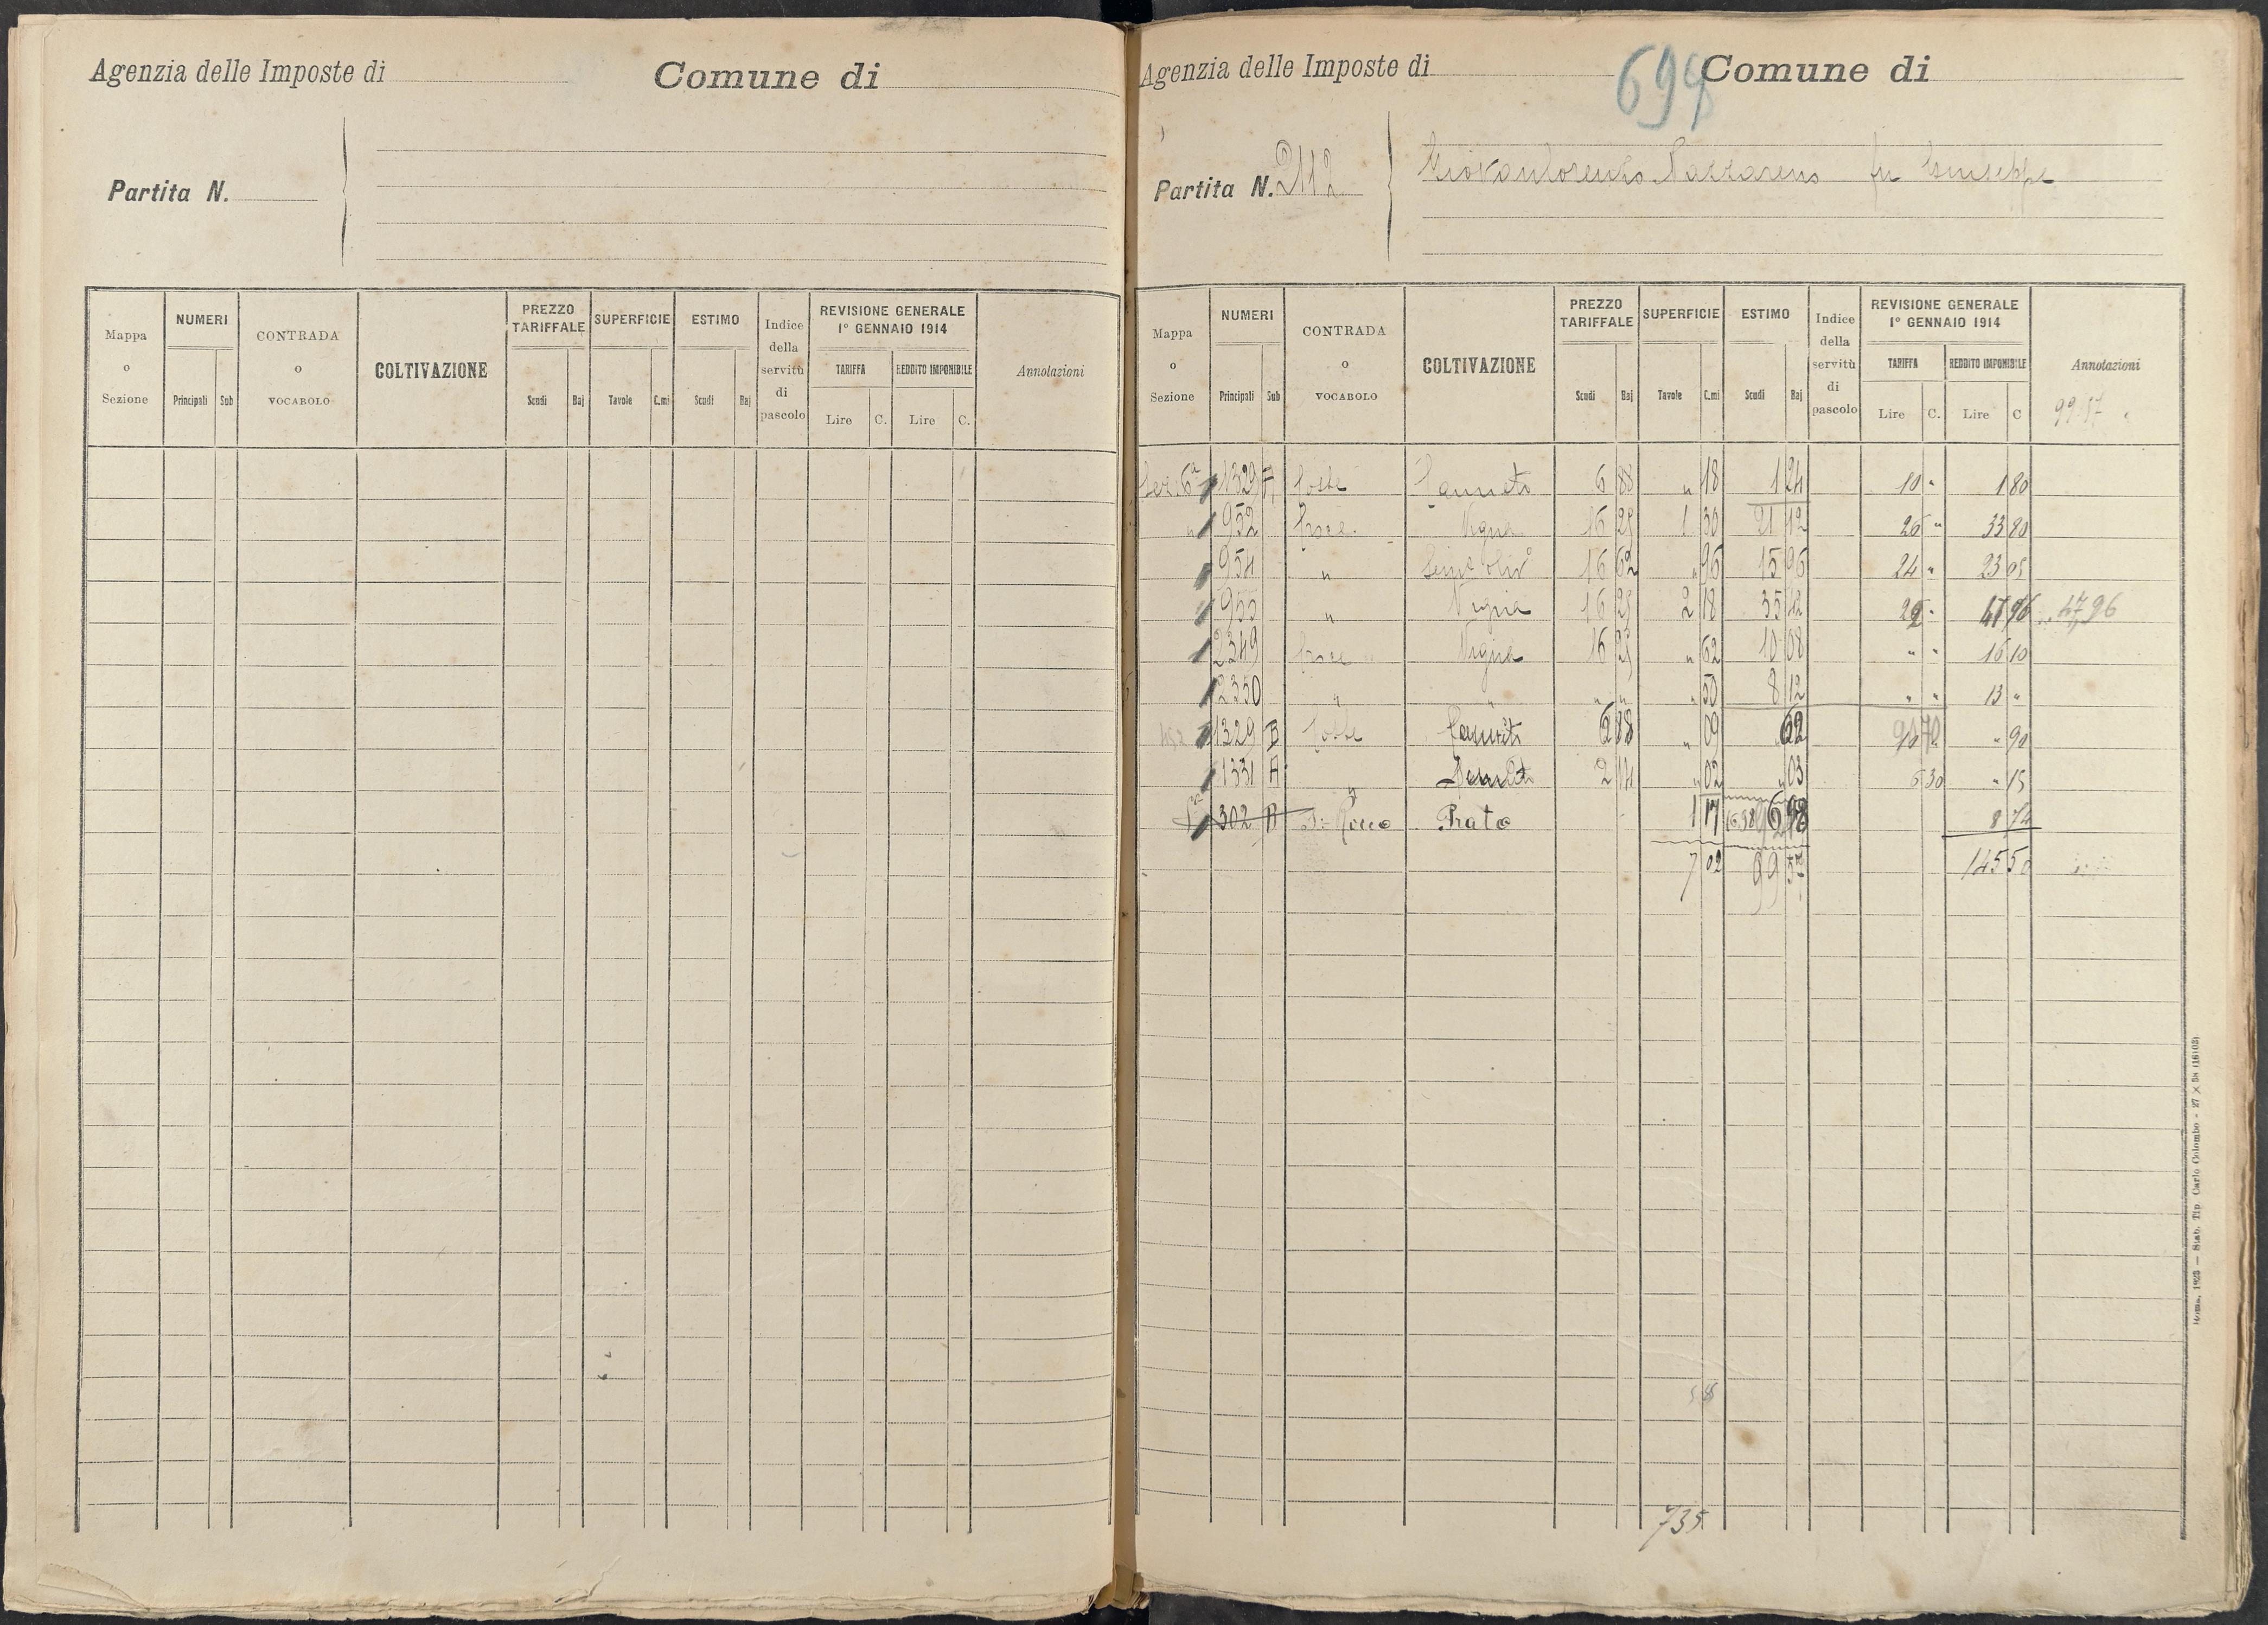 Agenzia delle Imposte di Comune di
Partita N.
Mappa o Sezione
NUMERI
Principali Sub
CONTRADA o VOCABOLO
COLTIVAZIONE
PREZZO TARIFFALE
Scudi Baj
SUPERFICIE
Tavole C.mi
ESTIMO
Scudi Baj
Indice della servitù di pascolo
REVISIONE GENERALE 1° GENNAIO 1914
TARIFFA REDDITO IMPONIBILE
Lire C. Lire C.
Annotazioni
Agenzia delle Imposte di Comune di
Partita N. 2112 Giovanlorenzo Nazzareno fu Giuseppe
Mappa o Sezione
NUMERI
Principali Sub
CONTRADA o VOCABOLO
COLTIVAZIONE
PREZZO TARIFFALE
Scudi Baj
SUPERFICIE
Tavole C.mi
ESTIMO
Scudi Baj
Indice della servitù di pascolo
REVISIONE GENERALE 1° GENNAIO 1914
TARIFFA REDDITO IMPONIBILE
Lire C. Lire C
Annotazioni
Sez. 6a 1329 Coste Canneto 6 88 " 18 1 24 10 " 1 80
" 952 Croce Vigna 16 25 1 30 21 12 26 " 33 80
954 " 16 62 " 96 15 96 24 " 23 05
955 " Vigna 16 25 2 18 35 42 47,96
2349 Croce Vigna 16 25 " 62 10 08 " " 16 10
2350 " " " " " 50 8 12 " " 13 "
1329 B Coste Canneto 6 88 " 09 62 " 90
1331 A " 2 14 " 02 " 03 6 30 " 15
302 B S. Rocco Prato 1 17 6 98 8 72
7 02 99 57 145 50
735
Roma, 1923 — Stab. Tip. Carlo Colombo - 27 X 38 (16103)